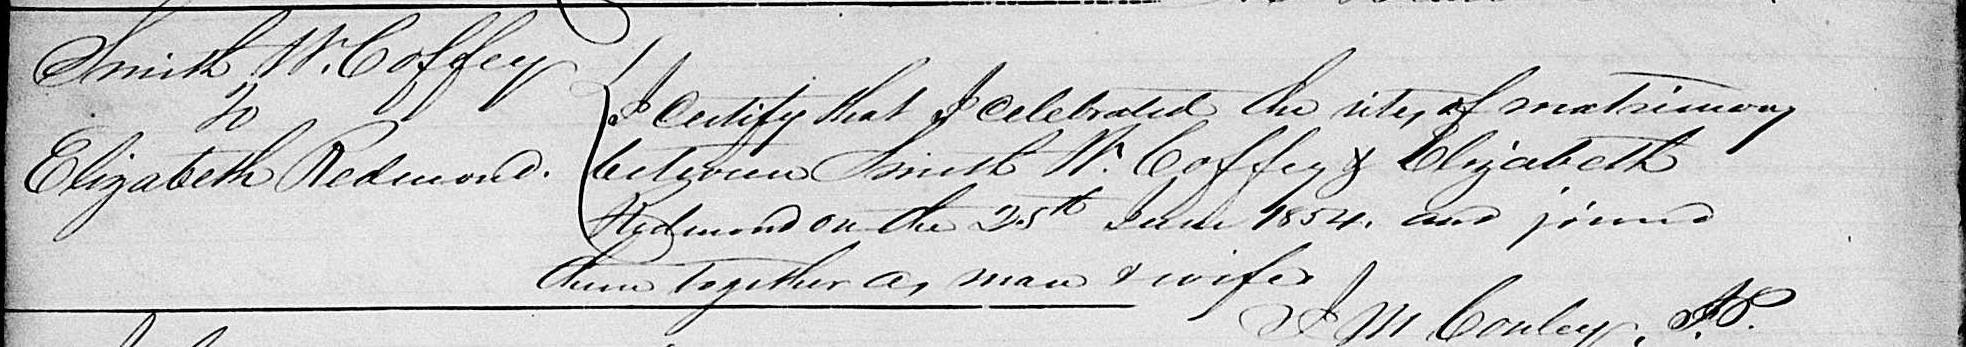 Smith W. Coffey
to
Elizabeth Redmond.
I Certify that I Celebrated the rites of matrimony
between Smith W. Coffey & Elizabeth
Redmond on the 25th June 1854. and joined
them together as man & wife
J M Conley, J.P.